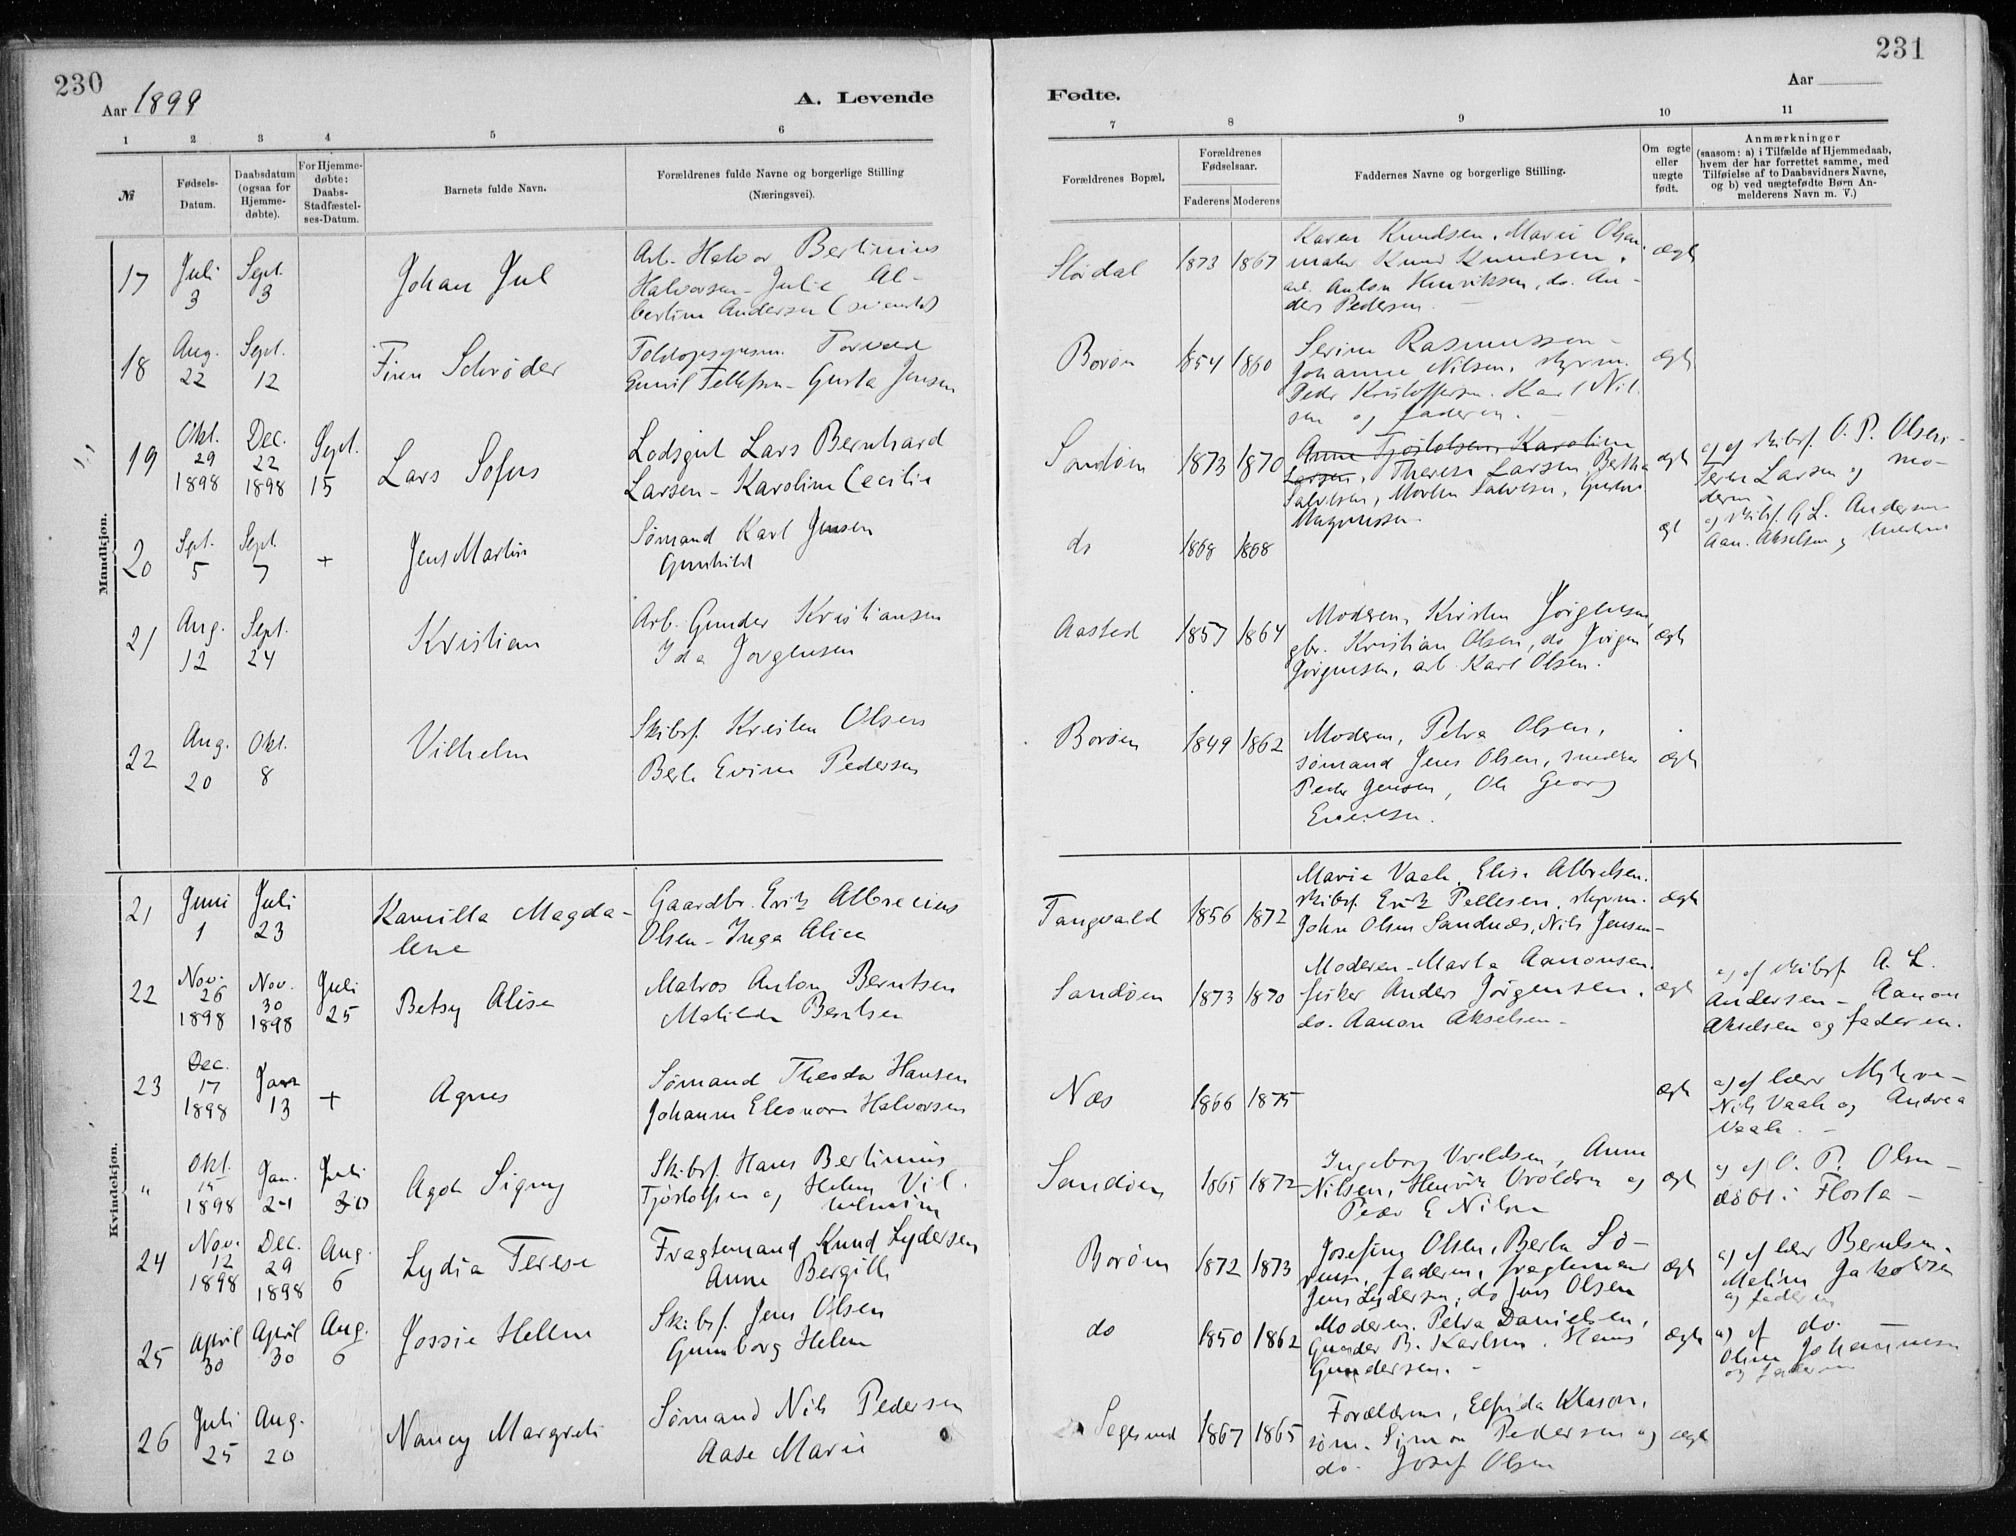 230
Aar 1899
A. Levende
1
2
3
4
5
6
№
Fødsels-
Datum.
Daabsdatum
(ogsaa for
Hjemme-
døbte).
For Hjemme-
døbte:
Daabs-
Stadfæstel-
ses-Datum.
Barnets fulde Navn.
Forældrenes fulde Navne og borgerlige Stilling
(Næringsvei).
Mandkjøn.
17
Juli
3
Sept.
3
Johan Jul
Arb. Halvor Bertinius
Halvorsen - Julie Al-
bertine Andersen
18
Aug.
22
Sept.
12
Finn Schrøder
Emil Tellefsen - Gusta Jensen
19
Okt.
29
1898
Dec.
22
1898
Sept.
15
Lars Sofus
Lodsgut Lars Bernhard
Larsen - Karoline Cecilie
20
Sept.
5
Sept.
7
+
Jens Martin
Sømand Karl Jensen
Gunhild
21
Aug.
12
Sept.
24
Kristian
Arb. Gunder Kristiansen
Ida Jørgensen
22
Aug.
20
Okt.
8
Vilhelm
Skibsf. Kristen Olsen
Berte Evine Pedersen
Kvindekjøn.
21
Juni
1
Juli
23
Kamilla Magda-
lene
Gaardbr. Erik Albrecius
Olsen - Inga Alice
22
Nov.
26
1898
Nov.
30
1898
Juli
25
Betsy Alise
Matros Anton Berntsen
Matilde Berntsen
23
Dec.
17
1898
Jan
13
+
Agnes
Sømand Theodor Hansen
Johanne Eleonore Halvorsen
"
Okt.
15
1898
Jan.
24
Juli
30
Agda Signy
Skibsf. Hans Bertinius
Tjøstolfsen og Helene Vil-
helmine
24
Nov.
12
1898
Dec.
29
1898
Aug.
6
Lydia Terese
Fragtemand Knud Lydersen
Anne Bergitte
25
April
30
April
30
Aug.
6
Jossie Hellene
Skibsf. Jens Olsen
Gunborg Helene
26
Juli
25
Aug.
20
Nancy Margrete
Sømand Nils Pedersen
Aase Marie
231
Aar
Fødte.
7
8
9
10
11
Forældrenes Bopæl.
Forældrenes
Fødselsaar.
Faderens
Moderens
Faddernes Navne og borgerlige Stilling
Om ægte
eller
uægte
født.
Anmærkninger
(saasom: a) i Tilfælde af Hjemmedaab,
hvem der har forrettet samme, med
Tilføielse af to Daabsvidners Navne,
og b) ved uægtefødte Børn An-
melderens Navn m. V.)
1873
1867
Karen Knudsen, Marie Olsen,
Knud Knudsen,
arb. Anton Henriksen, do. An-
ders Pedersen.
ægte
Borøen
1854
1860
Serine Rasmussen -
Johanne Nilsen, styrm.
Peder Kristoffersen. Karl Nil-
sen og faderen. -
ægte
Sandøen
1873
1870
Anne Tjøstolfsen, Karoline
Larsen, Therese Larsen, Bertha
Salvesen, Morten Salvesen,
Magnussen
ægte
a) af skibsf. O. P. Olsen -
Larsen og mo-
deren
do
1868
1868
ægt
a) skibsf. A. L. Andersen
Aan. Akselsen og
Aasted
1857
1864
Moderen, Kirsten Jørgensen,
gbr. Kristian Olsen, do Jørgen
Jørgensen, arb. Karl Olsen.
ægte
Borøen
1849
1862
Moderen, Petra Olsen,
sømand Jens Olsen, snedker
Peder Jensen, Ole Georg
ægte
Tangvald
1856
1872
Marie Vaale, Elise Albretsen.
skibsf. Erik Pellesen, styrm.
John Olsen Sandnæs, Nils Jensen -
ægte
Sandøen
1873
1870
Moderen - Marta Aanonsen.
fisker Anders Jørgensen,
do. Aanon Akselsen -
ægte
a) af skibsf. A. L.
Andersen - Aanon
Akselsen og faderen.
Næs
1866
1875
ægte
a) af lærer
Nils Vaale og Andrea
Vaale. -
Sandøen
1865
1872
Ingeborg Vroldsen, Anne
Nilsen, Henrik Vroldsen og
Peder E Nilsen
ægte
a) af O. P. Olsen -
døbt i Flosta -
Borøen
1872
1873
Josefine Olsen, Berte Lo-
rense, faderen, fragtemand
Jens Lydersen, do Jens Olsen
ægte
a) af lærer Berntsen.
Meline Jakobsen
og faderen
do
1850
1862
Moderen. Petra Danielsen,
Gunder B. Karlsen, Hans
Gundersen. -
ægte
a) af do.
Oline Johannesen
og faderen
1867
1865
Forældrene, Elfrida Klason,
søm. Simon Pedersen og
do. Josef Olsen
ægte